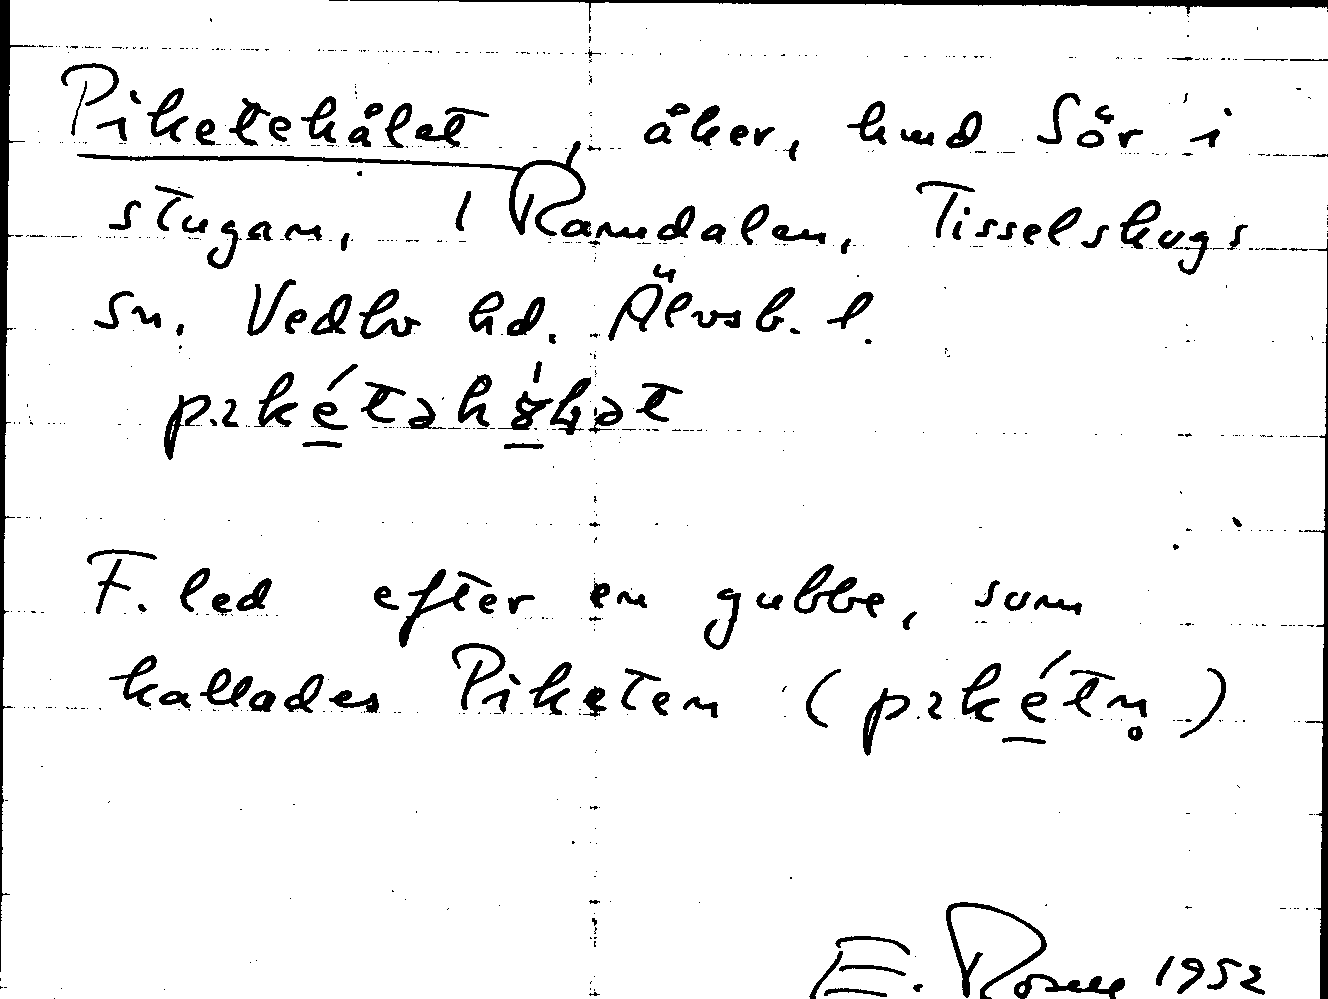 Piketekålet, åker, hmd Sör i
stugan, 1 Ramdalen, Tisselskogs
sn. Vedbo hd. Älvsb. l.
F. led efter en gubbe, som
kallades Piketen (pıkétn̥)
E. Rosell 1952